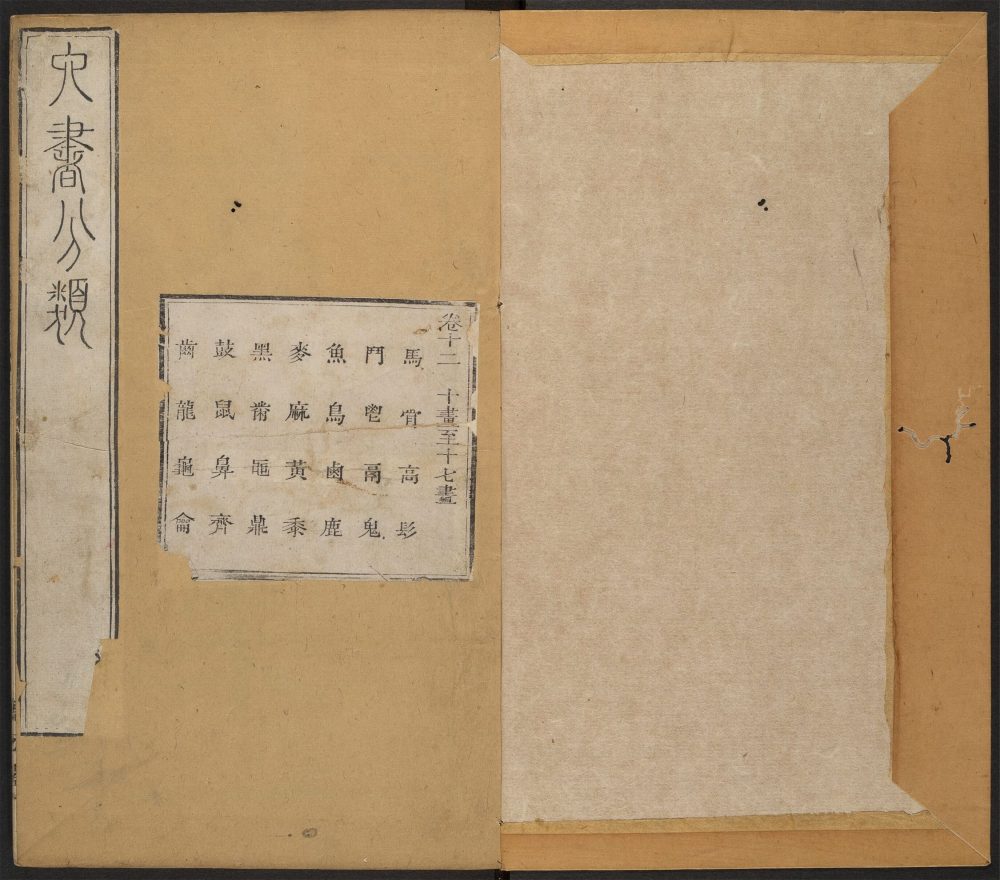 六書分類
卷十二　十畫至十七畫
馬骨高髟
鬥鬯鬲鬼
魚鳥鹵鹿
麥麻黃黍
黑黹黽鼎
鼓鼠鼻齊
齒龍龜龠